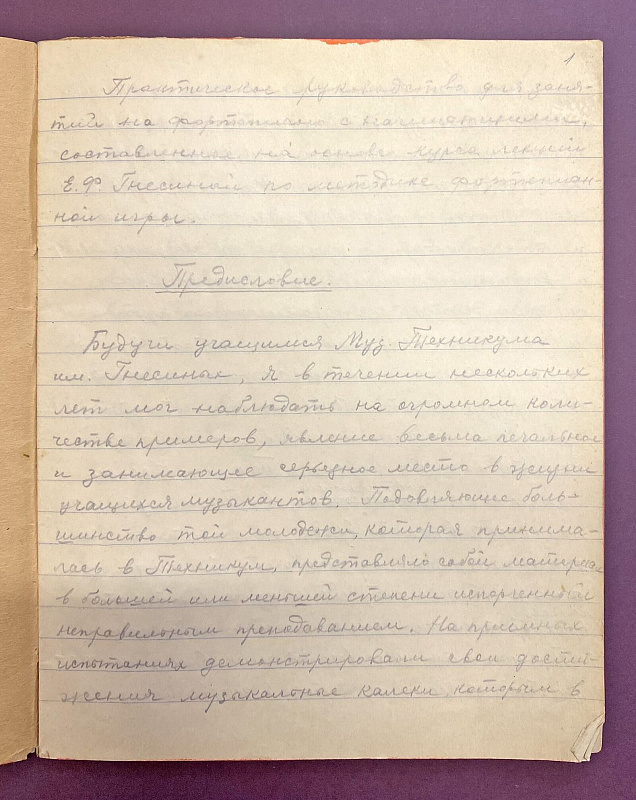 1
Практическое руководство для заня-
тий на фортепиано с начинающими,
составленных на основе курса лекций
Е.Ф. Гнесиной по методике фортепиан-
ной игры.
Предисловие.
Будучи учащимся Муз. Техникума
им. Гнесиных, я в течении нескольких
лет мог наблюдать на огромном коли-
честве примеров, явление весьма печальное
и занимающее серьезное место в жизни
учащихся музыкантов. Подовляющее боль-
шинство той молодежи, которая принима-
лась в Техникум, представляло собой материал
в большей или меньшей степени испорченный
неправильным преподаванием. На приемных
испытаниях демонстрировали свои дости-
жения музыкальные калеки, которым в